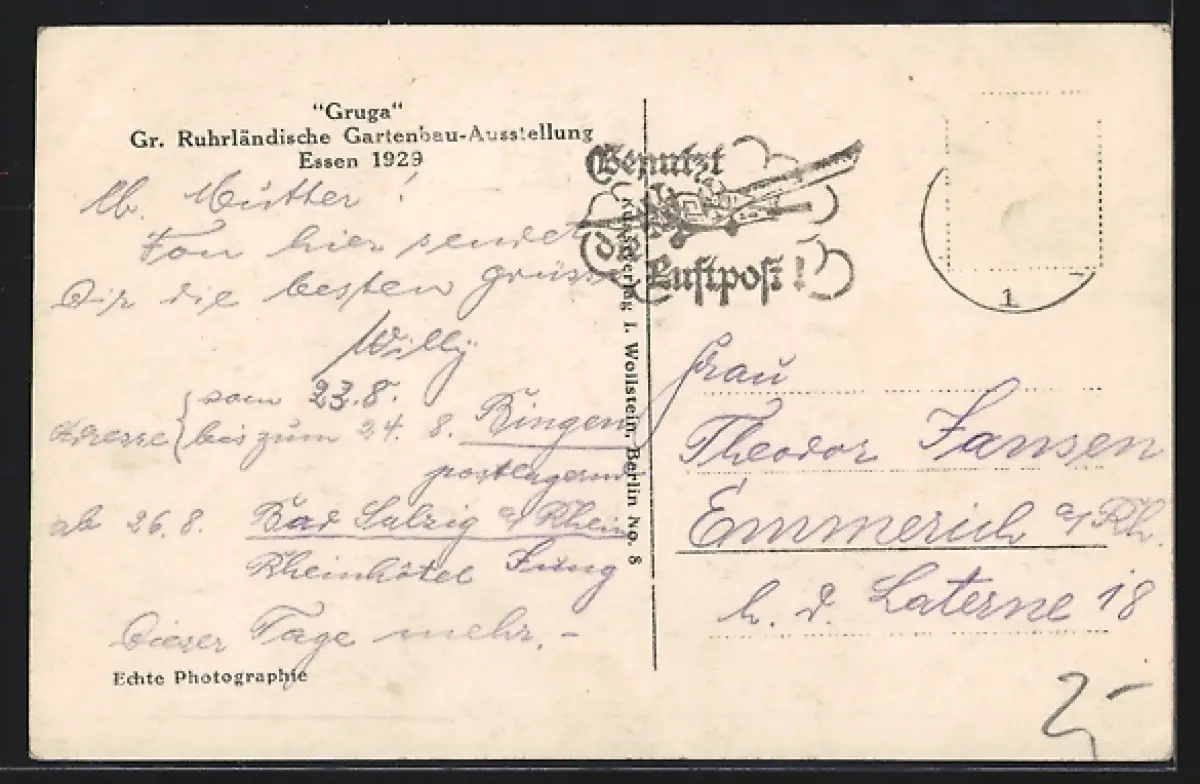 "Gruga"
Gr. Ruhrländische Gartenbau-Ausstellung
Essen 1929
lb. Mutter!
Von hier sendet
Dir die besten Grüsse
Willy
vom 23.8.
Adresse bis zum 24. 8. Bingen
postlagernd
ab 26.8. Bad Salzig a/Rhein
Rheinhôtel Jung
Dieser Tage mehr. –
Echte Photographie
Kunstverlag J. Wollstein, Berlin No. 8
Benutzt
die
Luftpost!
1
Frau
Theodor Jansen
Emmerich a/Rh.
h. d. Laterne 18
25–